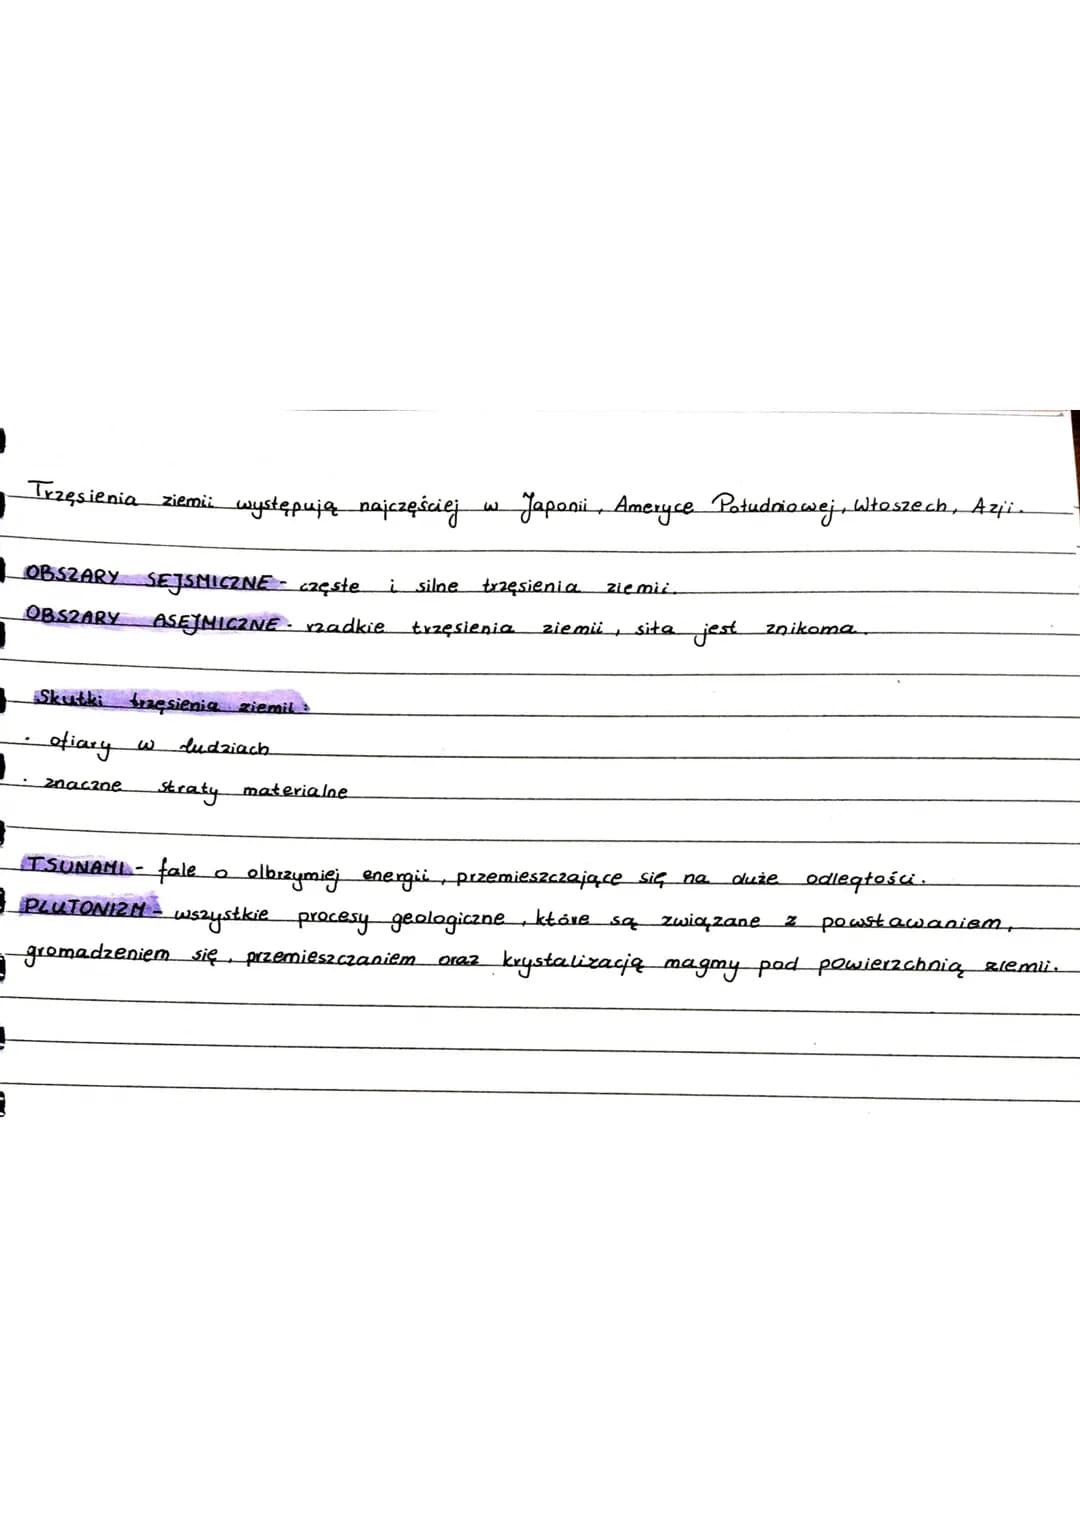 Trzęsienia ziemii występują najczęściej w Japonii, Ameryce Południowej, Włoszech, Azji.
OBSZARY SEJSMICZNE - częste i silne trzęsienia ziemii.
OBSZARY ASEJMICZNE - rzadkie trzęsienia ziemii, siła jest znikoma.
Skutki trzęsienia ziemii:
· ofiary w ludziach
· znaczne straty materialne
TSUNAMI - fale o olbrzymiej energii, przemieszczające się na duże odległości.
PLUTONIZM - wszystkie procesy geologiczne, które są związane z powstawaniem,
gromadzeniem się, przemieszczaniem oraz krystalizacją magmy pod powierzchnią ziemii.